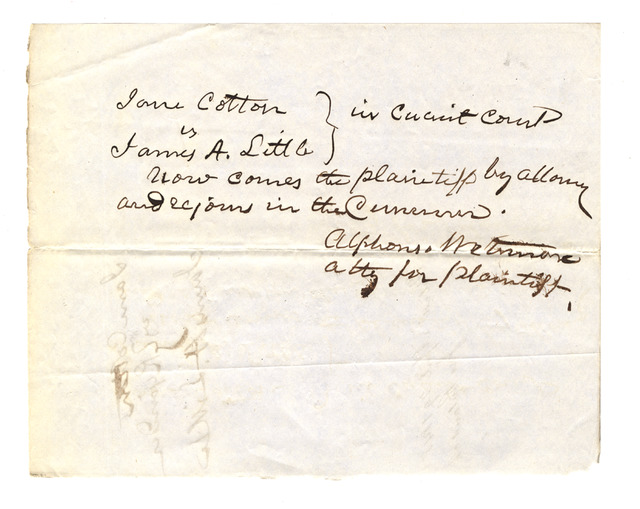 Jane Cotton } in Circuit Court
vs
James A. Little
Now comes the plaintiff by attorney
and rejoins in the Demurrer.
Alphonso Wetmore
atty for plaintiff.